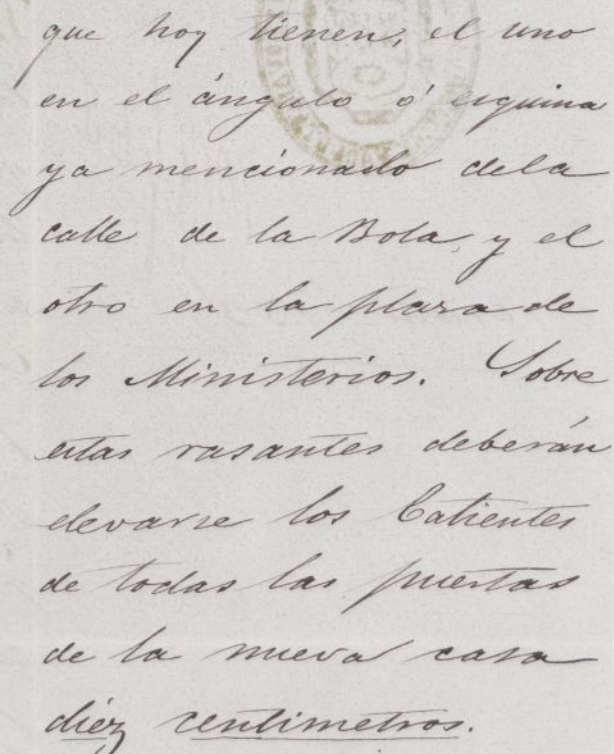 que hoy tienen, el uno
en el ángulo ó esquina
ya mencionado dela
calle de la Bola, y el
otro en la plaza de
los Ministerios. Sobre
estas rasantes deberán
elevarse los batientes
de todas las puertas
de la nueva casa
diez centimetros.